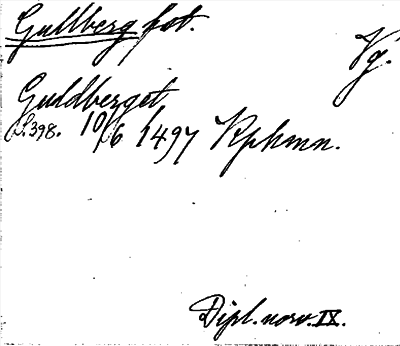 Gullberg fot.
Vg.
Guldberget
S. 398. 10/6 1497 Kphmn.
Dipl. norv. IX.